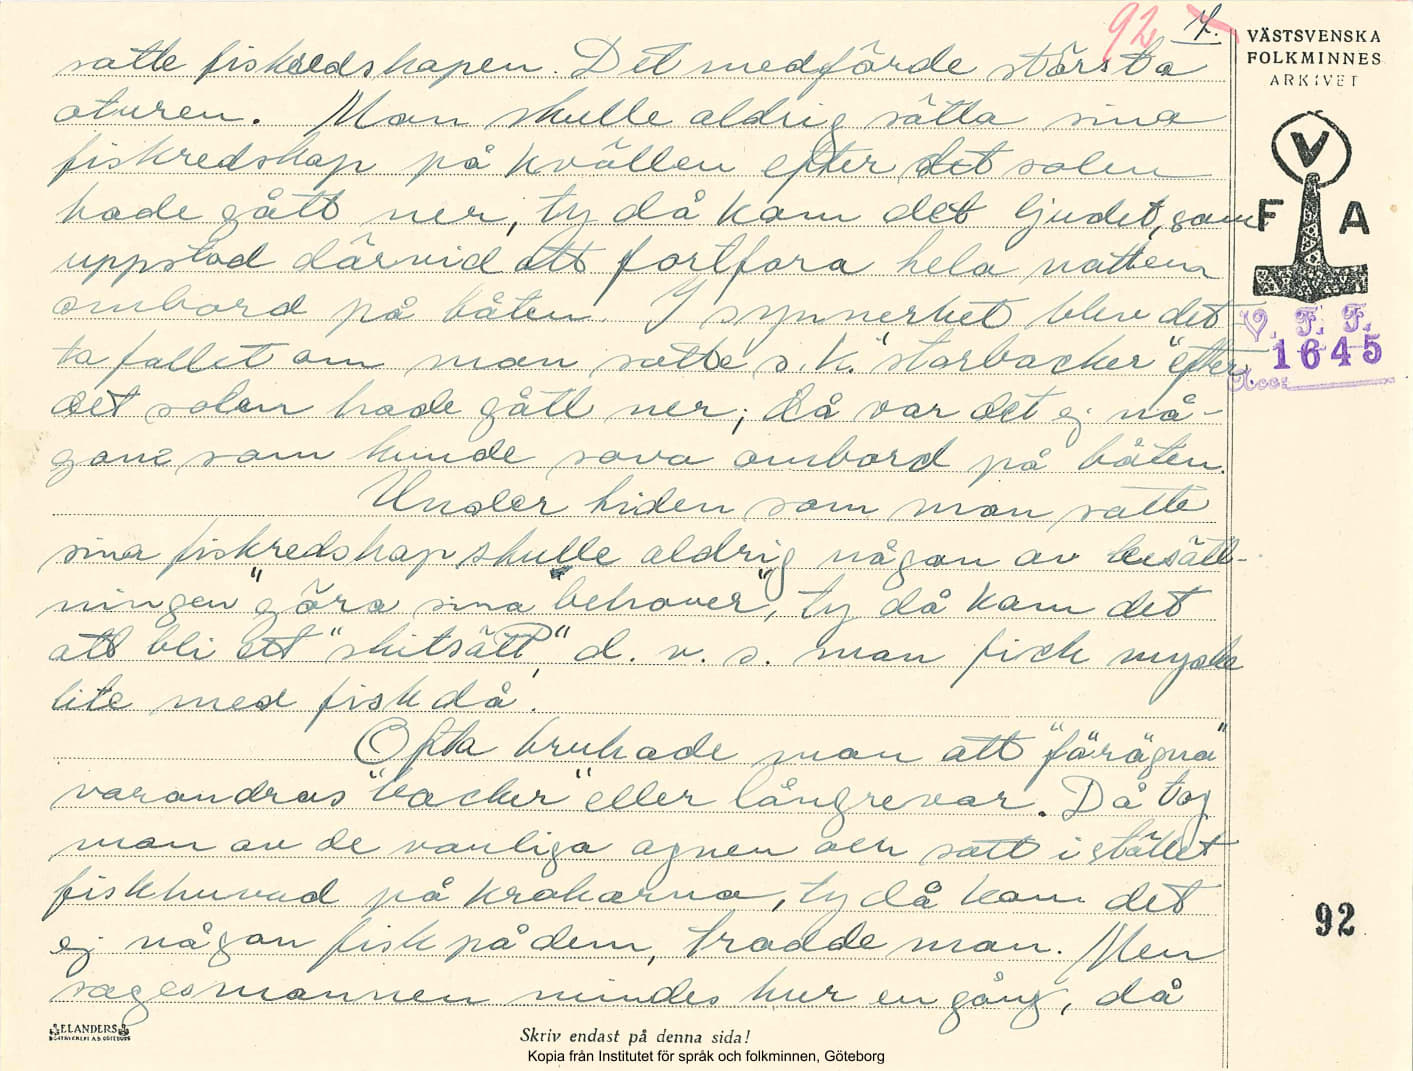 92 7.
VÄSTSVENSKA
FOLKMINNES
ARKIVET
V
F A
V. F. F.
1645
Acc:
satte fiskredskapen. Det medförde största
oturen. Man skulle aldrig sätta sina
fiskredskap på kvällen efter det solen
hade gått ner, ty då kom det ljudet, som
uppstod därvid att fortfara hela natten
ombord på båten. I synnerhet blev det-
ta fallet om man satte s.k. "storbackor" efter
det solen hade gått ner; då var det ej nå-
gon, som kunde sova ombord på båten.
Under tiden som man satte
sina fiskredskap skulle aldrig någon av besätt-
ningen "göra sina behover", ty då kom det
att bli ett "skitsätt", d. v. s. man fick mycke
lite med fisk då.
Ofta brukade man att "förägna"
varandras "backer" eller långrevar. Då tog
man av de vanliga agnen och satt i stället
fiskhuvud på krokarna, ty då kom det
ej någon fisk på dem, trodde man. Men
sagesmannen mindes hur en gång, då
92
ELANDERS
BOKTRYCKERI A.B. GÖTEBORG
Skriv endast på denna sida!
Kopia från Institutet för språk och folkminnen, Göteborg